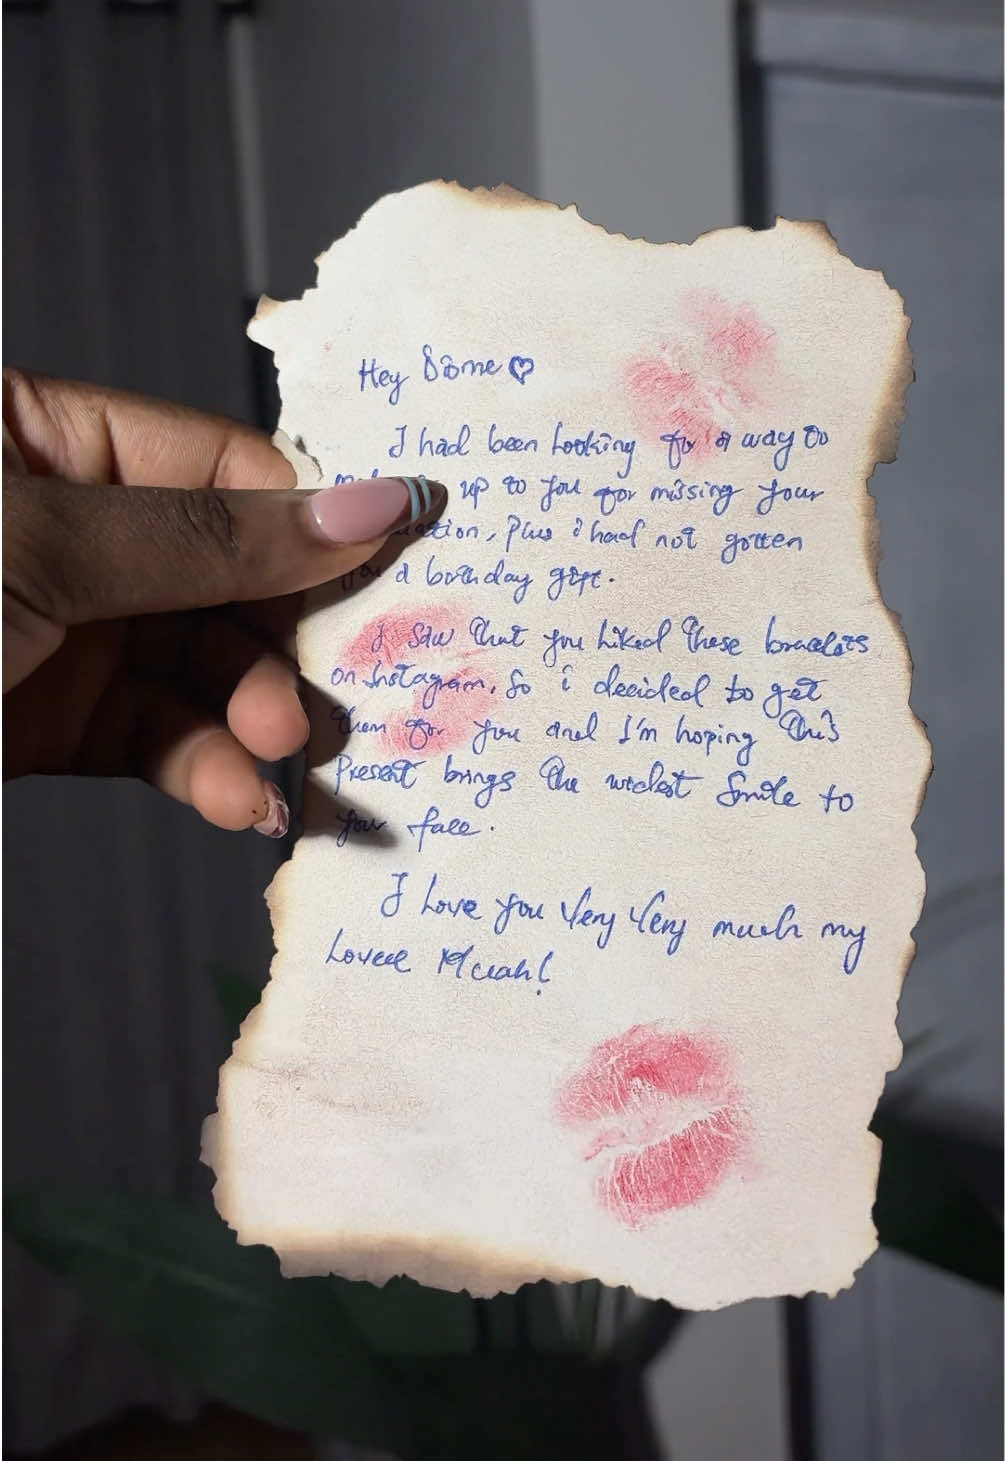 Hey Dome
I had been Looking for a way to
up to you for missing your
Plus i had not gotten
you a birthday gift.
I saw that you Liked these bracelets
on Instagram, So i decided to get
them for you and I'm hoping this
Present brings the widest Smile to
your face.
I Love you Very Very much my
Loveee Muah!